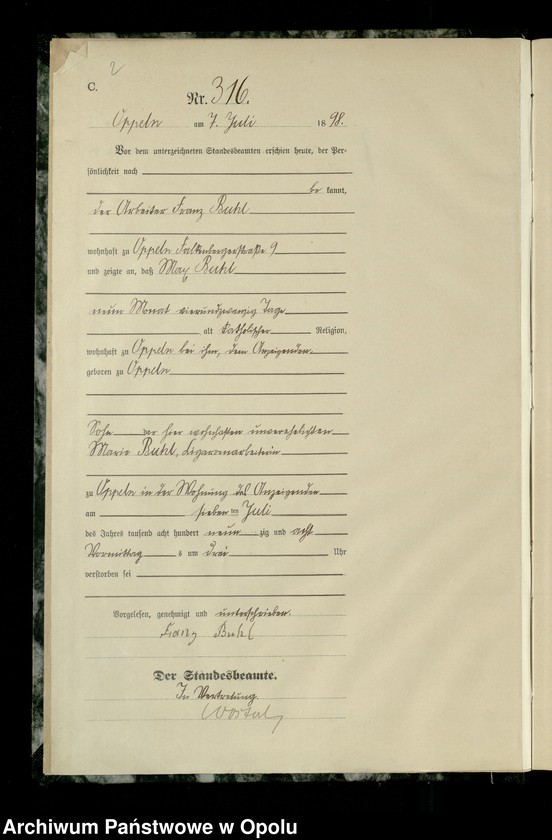 2
C.
Nr. 316.
Oppeln am 7. Juli 1898.
Vor dem unterzeichneten Standesbeamten erschien heute, der Per-
sönlichkeit nach
be kannt,
der Arbeiter Franz Buhl
wohnhaft zu Oppeln Falkenbergerstraße 9
und zeigte an, daß Max Buhl
neun Monat vierundzwanzig Tage
alt katholischer Religion,
wohnhaft zu Oppeln bei ihm, dem Anzeigenden
geboren zu Oppeln
Sohn der hier wohnhaften unverehelichten
Marie Buhl, Cigarrenarbeiterin
zu Oppeln in der Wohnung des Anzeigenden
am sieben ten Juli
des Jahres tausend acht hundert neun zig und acht
Vormittag s um drei Uhr
verstorben sei
Vorgelesen, genehmigt und unterschrieben.
Franz Buhl
Der Standesbeamte.
In Vertretung.
Archiwum Państwowe w Opolu